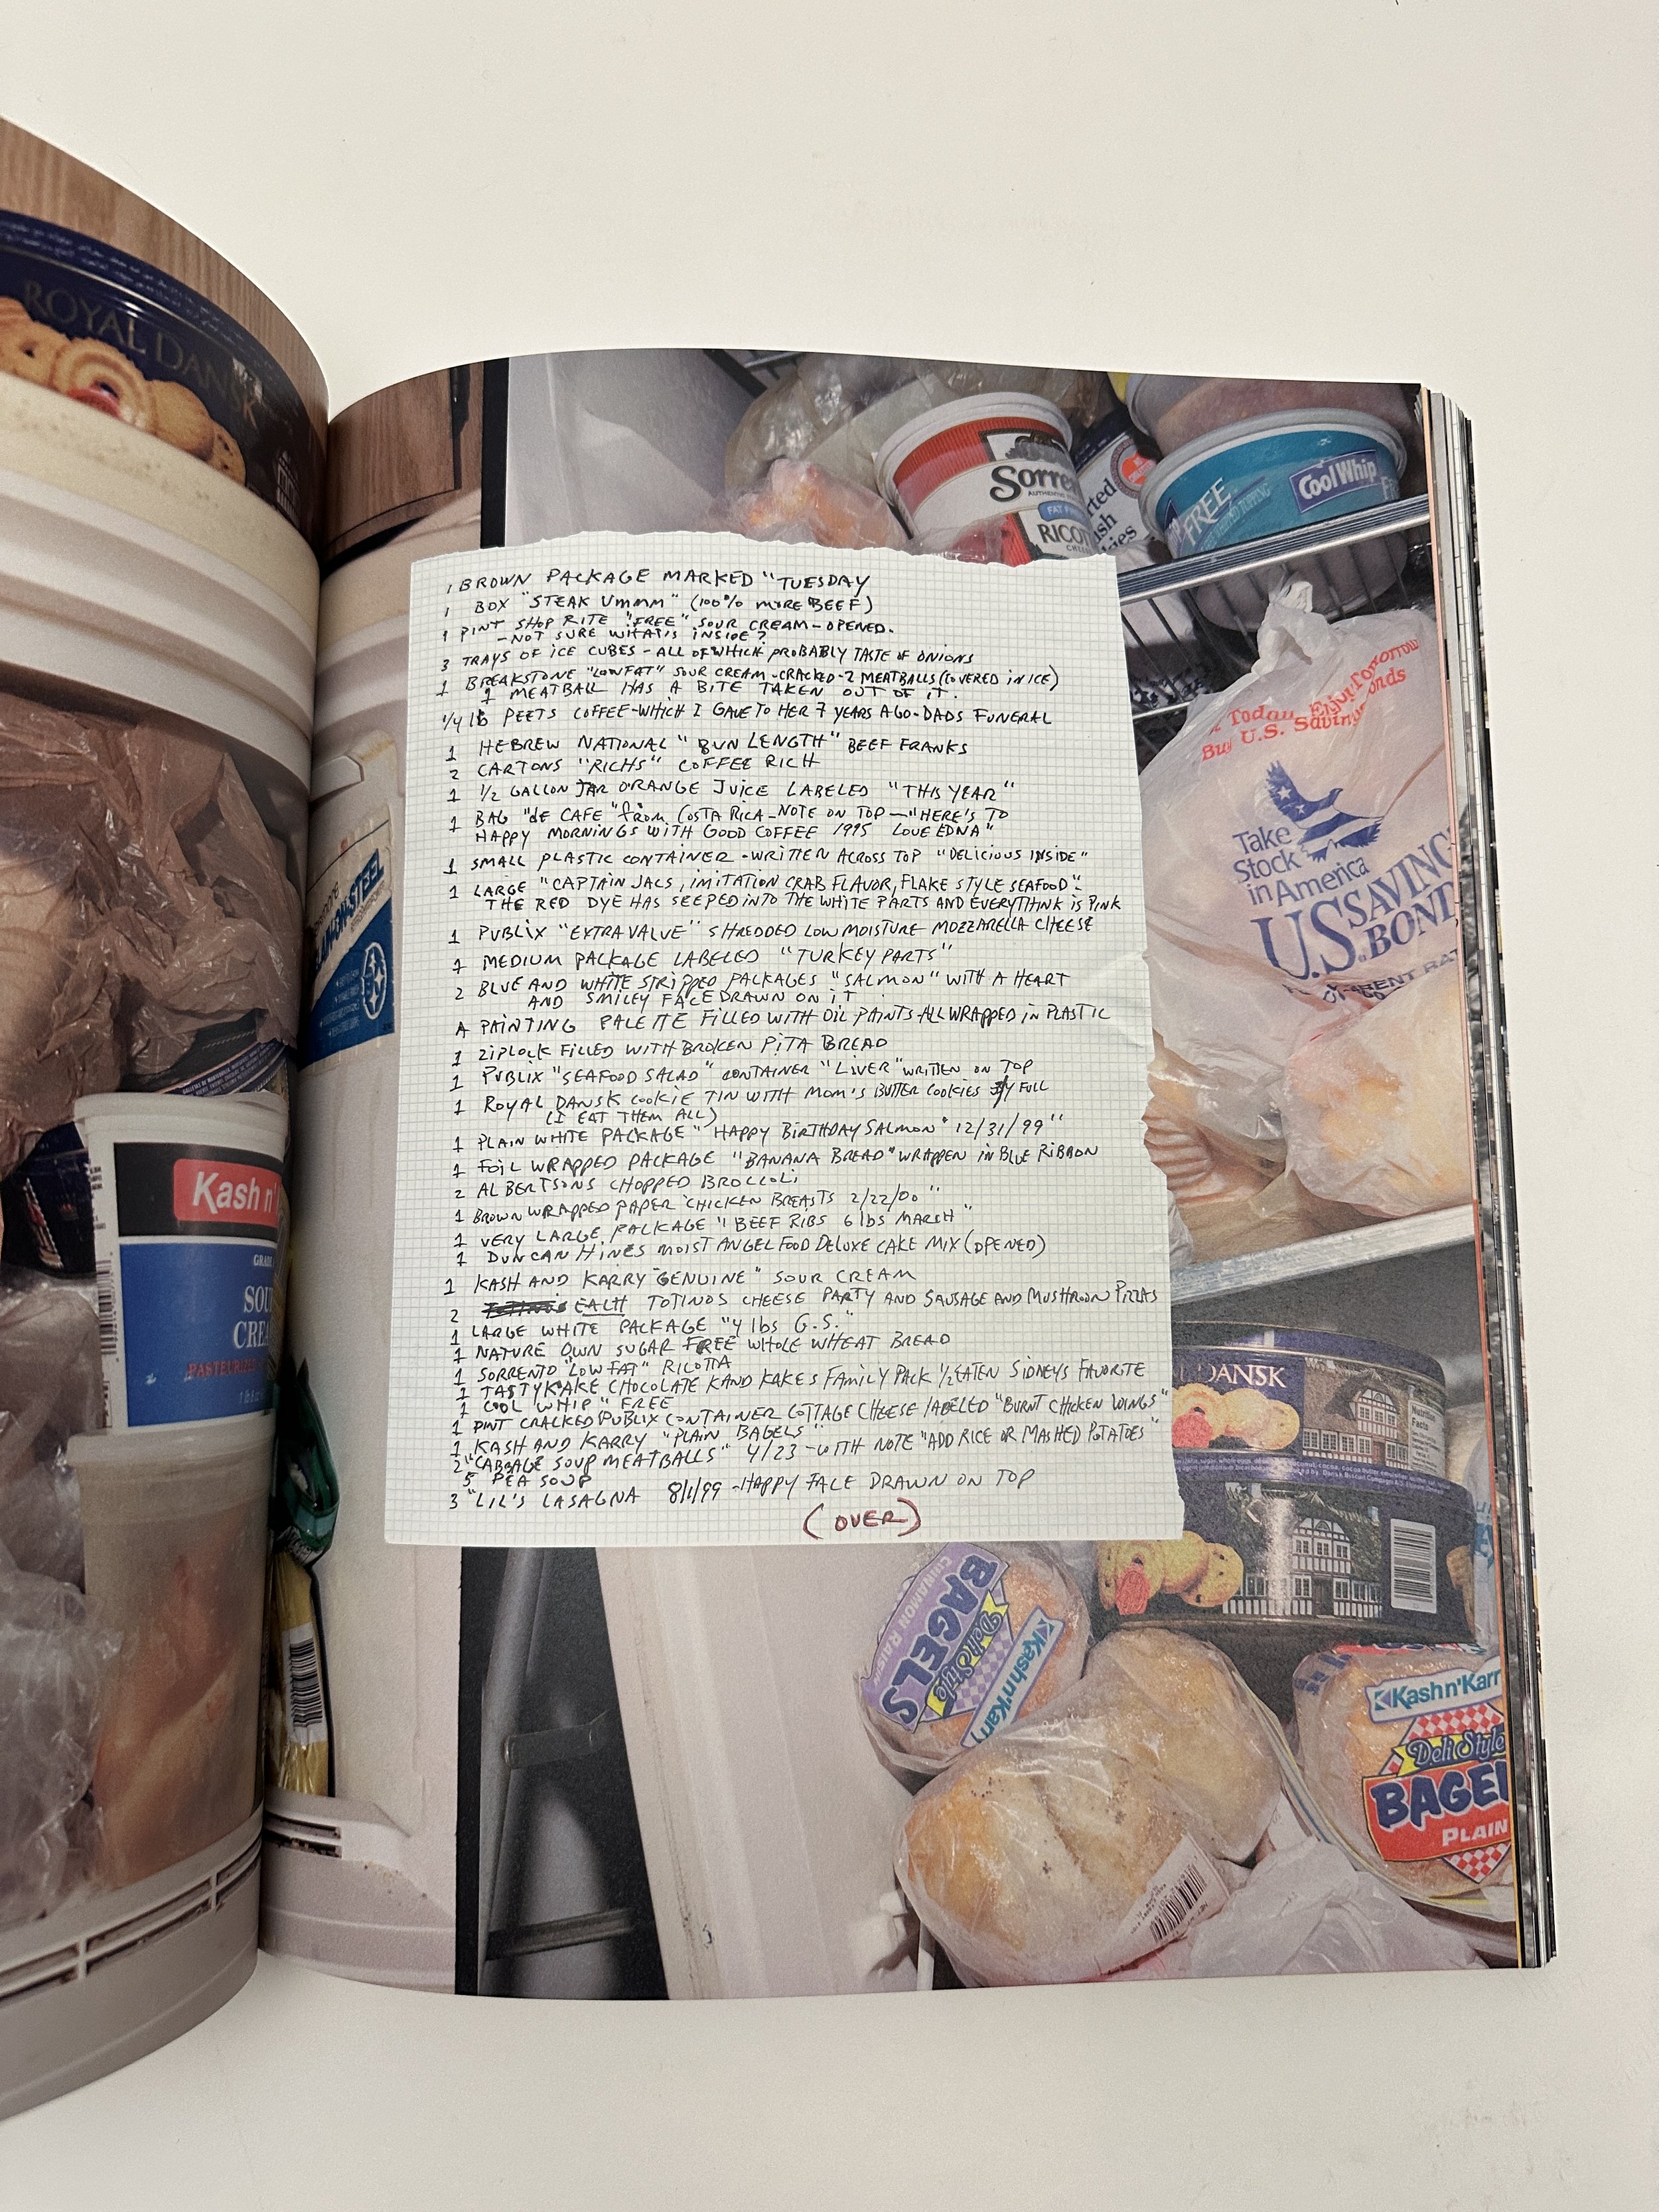 ROYAL DANSK
Kash n'
GRADE
SOU
CREA
PASTEURIZED
Sorre
FAT F
RICOT
CHEE
rted
ish
kies
FREE
Cool Whip
Today Enjoy Tomorrow
Buy U.S. Savings Bonds
Take
Stock
in America
U.S. SAVING
BOND
1 BROWN PACKAGE MARKED "TUESDAY
1 BOX "STEAK UMMM" (100% MORE BEEF)
1 PINT SHOP RITE "FREE" SOUR CREAM - OPENED.
- NOT SURE WHAT IS INSIDE?
3 TRAYS OF ICE CUBES - ALL OF WHICH PROBABLY TASTE OF ONIONS
1 BREAKSTONE "LOWFAT" SOUR CREAM - CRACKED - 2 MEATBALLS (COVERED IN ICE)
1 MEATBALL HAS A BITE TAKEN OUT OF IT.
1/4 lb PEETS COFFEE - WHICH I GAVE TO HER 7 YEARS AGO - DADS FUNERAL
1 HEBREW NATIONAL "BUN LENGTH" BEEF FRANKS
2 CARTONS "RICHS" COFFEE RICH
1 1/2 GALLON JAR ORANGE JUICE LABELED "THIS YEAR"
1 BAG "de CAFE" from COSTA RICA - NOTE ON TOP - "HERE'S TO
HAPPY MORNINGS WITH GOOD COFFEE 1995 LOVE EDNA"
1 SMALL PLASTIC CONTAINER - WRITTEN ACROSS TOP "DELICIOUS INSIDE"
1 LARGE "CAPTAIN JACS, IMITATION CRAB FLAVOR, FLAKE STYLE SEAFOOD".
THE RED DYE HAS SEEPED INTO THE WHITE PARTS AND EVERYTHINK IS PINK
1 PUBLIX "EXTRA VALUE" SHREDDED LOW MOISTURE MOZZARELLA CHEESE
1 MEDIUM PACKAGE LABELED "TURKEY PARTS"
2 BLUE AND WHITE STRIPPED PACKAGES "SALMON" WITH A HEART
AND SMILEY FACE DRAWN ON IT
A PAINTING PALETTE FILLED WITH OIL PAINTS ALL WRAPPED IN PLASTIC
1 ZIPLOCK FILLED WITH BROKEN PITA BREAD
1 PUBLIX "SEAFOOD SALAD" CONTAINER "LIVER" WRITTEN ON TOP
1 ROYAL DANSK COOKIE TIN WITH MOM'S BUTTER COOKIES FULL
(I EAT THEM ALL)
1 PLAIN WHITE PACKAGE "HAPPY BIRTHDAY SALMON" 12/31/99"
1 FOIL WRAPPED PACKAGE "BANANA BREAD" WRAPPEN IN BLUE RIBBON
2 ALBERTSONS CHOPPED BROCCOLI
1 BROWN WRAPPED PAPER "CHICKEN BREASTS 2/22/00"
1 VERY LARGE PACKAGE "BEEF RIBS 6 lbs MARCH"
1 DUNCAN HINES MOIST ANGEL FOOD DELUXE CAKE MIX (OPENED)
1 KASH AND KARRY "GENUINE" SOUR CREAM
2 EACH TOTINOS CHEESE PARTY AND SAUSAGE AND MUSHROOM PIZZAS
1 LARGE WHITE PACKAGE "4 lbs G.S."
1 NATURE OWN SUGAR FREE WHOLE WHEAT BREAD
1 SORRENTO "LOW FAT" RICOTTA
1 TASTYKAKE CHOCOLATE KANDY KAKES FAMILY PACK 1/2 EATEN SIDNEYS FAVORITE
1 COOL WHIP "FREE
1 PINT CRACKED PUBLIX CONTAINER COTTAGE CHEESE LABELED "BURNT CHICKEN WINGS"
1 KASH AND KARRY "PLAIN BAGELS"
2 "CABBAGE SOUP MEATBALLS" 4/23 - WITH NOTE "ADD RICE OR MASHED POTATOES"
5 PEA SOUP
3 "LIL'S LASAGNA 8/1/99 - HAPPY FACE DRAWN ON TOP
(OVER)
DANSK
Nutrition
Facts
CINNAMON RAISIN
BAGELS
Deli Style
Kash n' Kar
Kash n' Karr
Deli Style
BAGEL
PLAIN